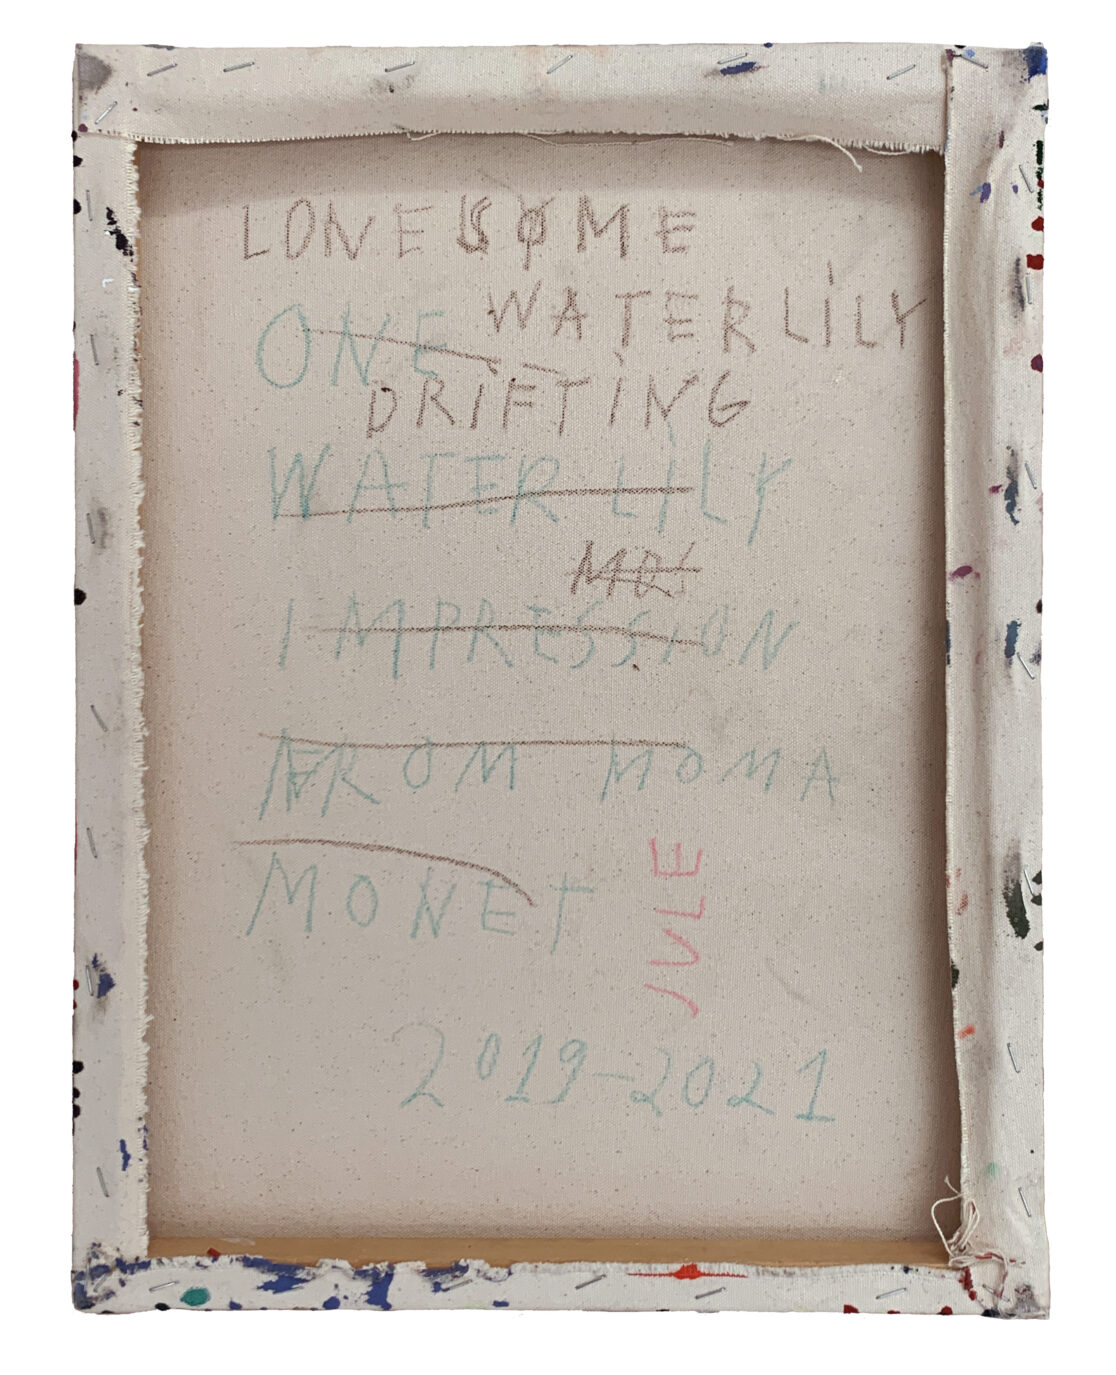 LONESOME
WATERLILY
ONE
DRIFTING
WATER LILY
IMPRESSION
FROM MOMA
MONET
JULE
2019-2021